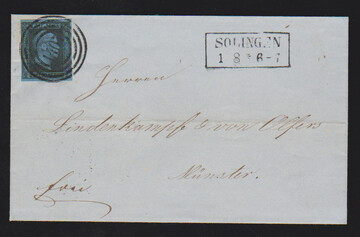 SOLINGEN
1 8 * 6-7
Herren
Lindenkampf & von Olfers
Münster.
frei